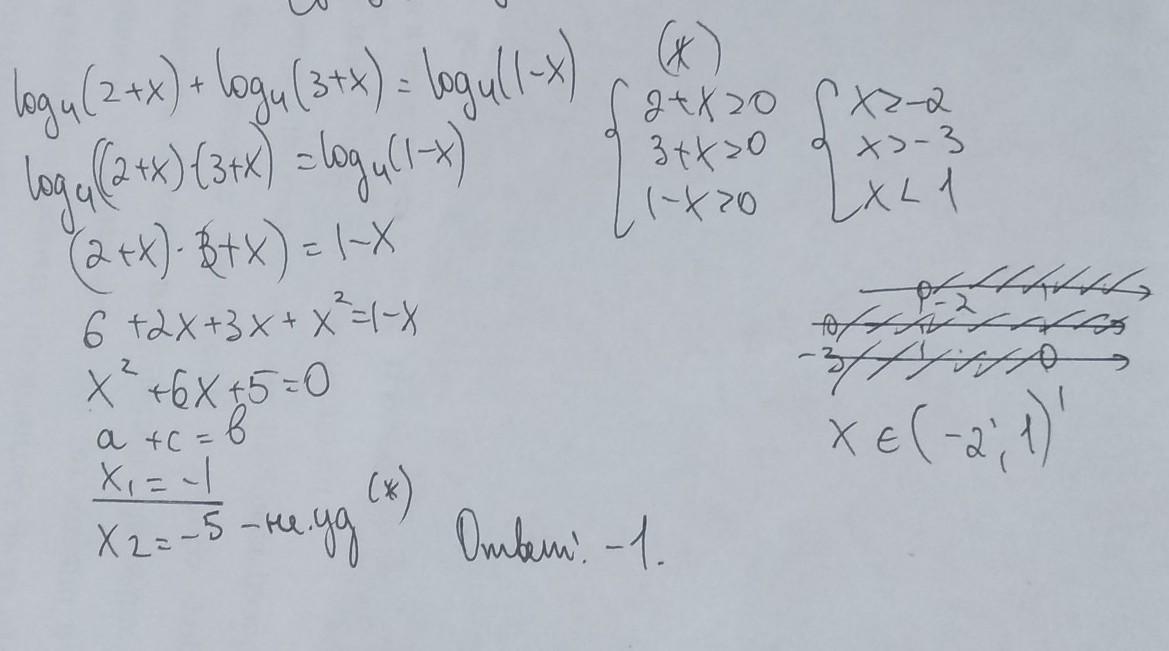 log₄(2+x) + log₄(3+x) = log₄(1-x)
log₄((2+x)·(3+x) = log₄(1-x)
(2+x)·(3+x) = 1-x
6 + 2x + 3x + x² = 1-x
x² + 6x + 5 = 0
a + c = b
x₁ = -1
x₂ = -5 - не уд (*)
Ответ: -1.
(*)
2+x>0
3+x>0
1-x>0
x>-2
x>-3
x<1
-2
-3
x ∈ (-2; 1)